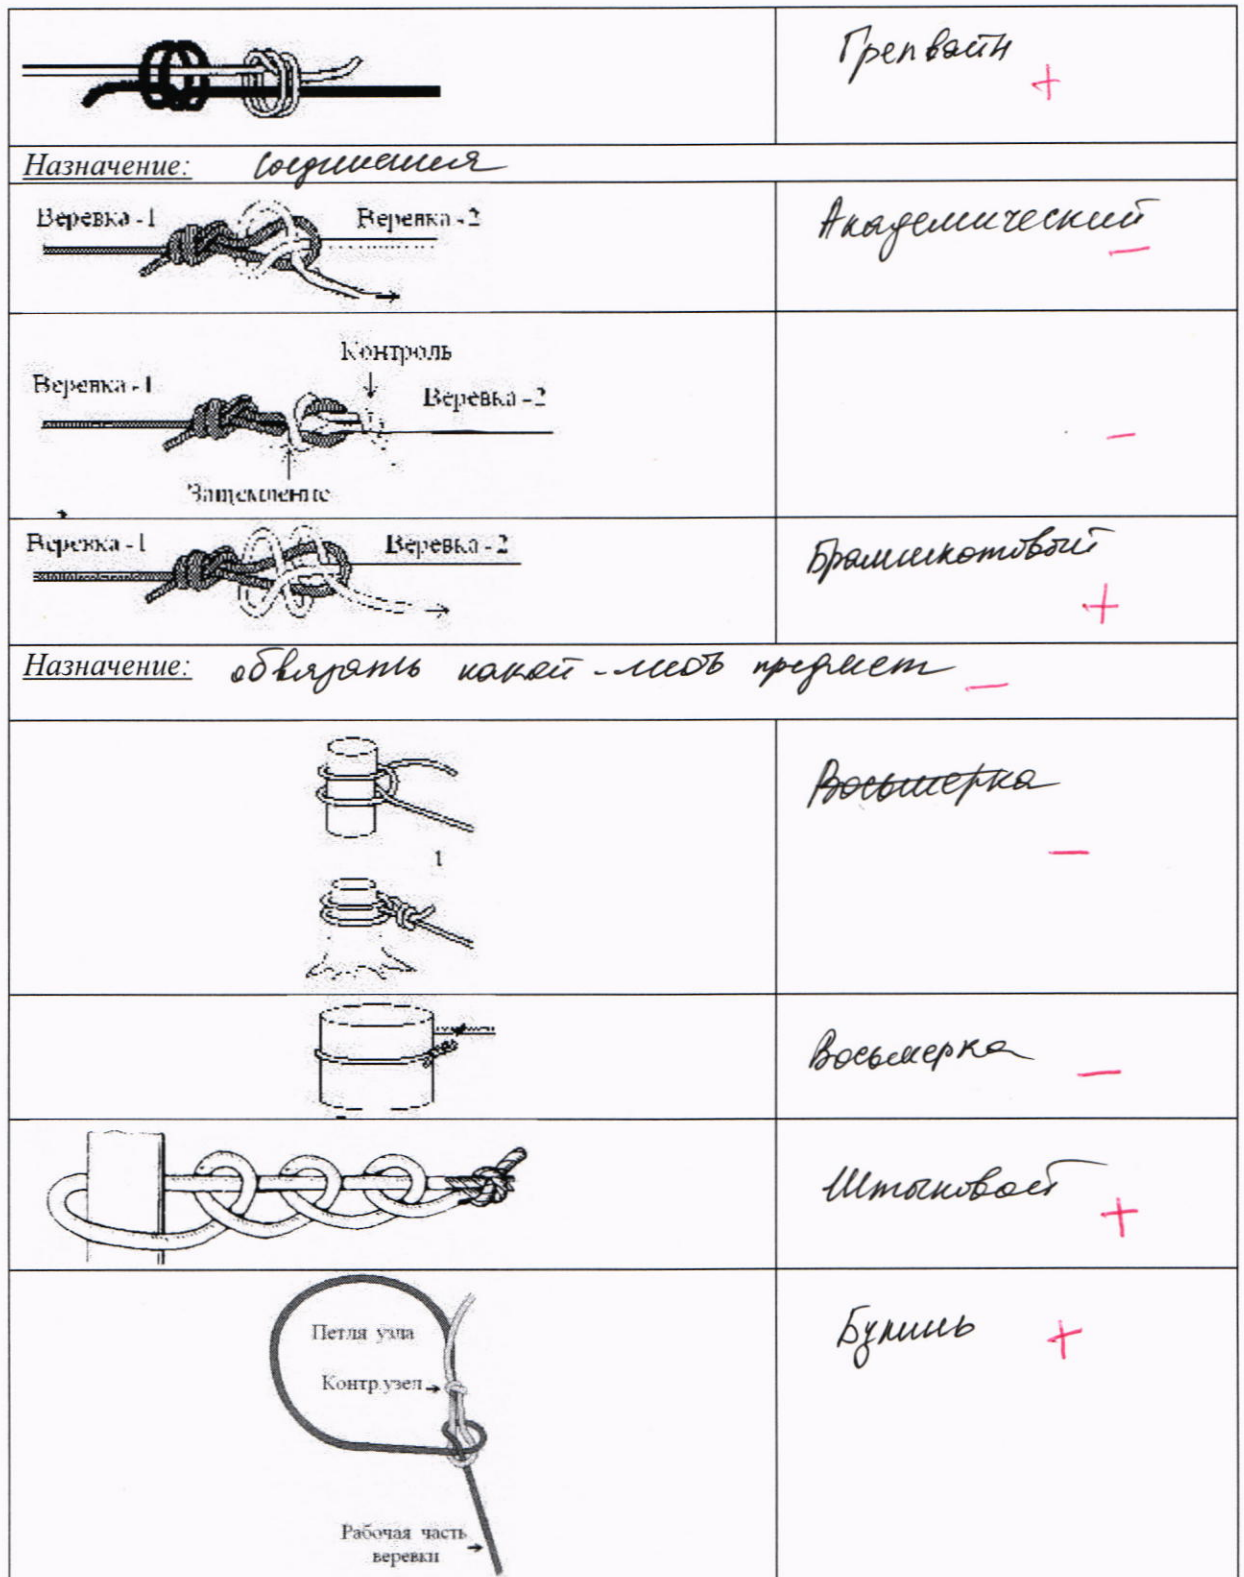 Грепвайн
+
Назначение: соединения
Веревка -1 Веревка -2
Академический
—
Контроль
Веревка -1
Веревка -2
—
Защемление
Веревка -1 Веревка -2
Брамшкотовый
+
Назначение: обвязать какой-либо предмет —
Восьмерка
—
1
Восьмерка
—
Штыковой
+
Петля узла
Булинь +
Контр.узел
Рабочая часть
веревки